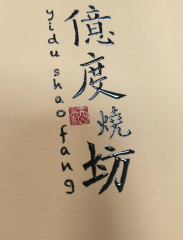 億度燒坊
yidu shao fang